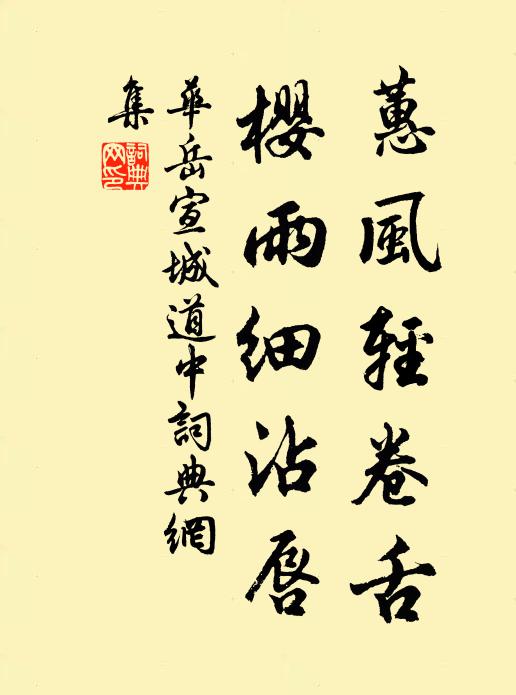 蕙風輕卷舌
櫻雨細沾唇
華岳宣城道中詞典網
集
詞典
网印